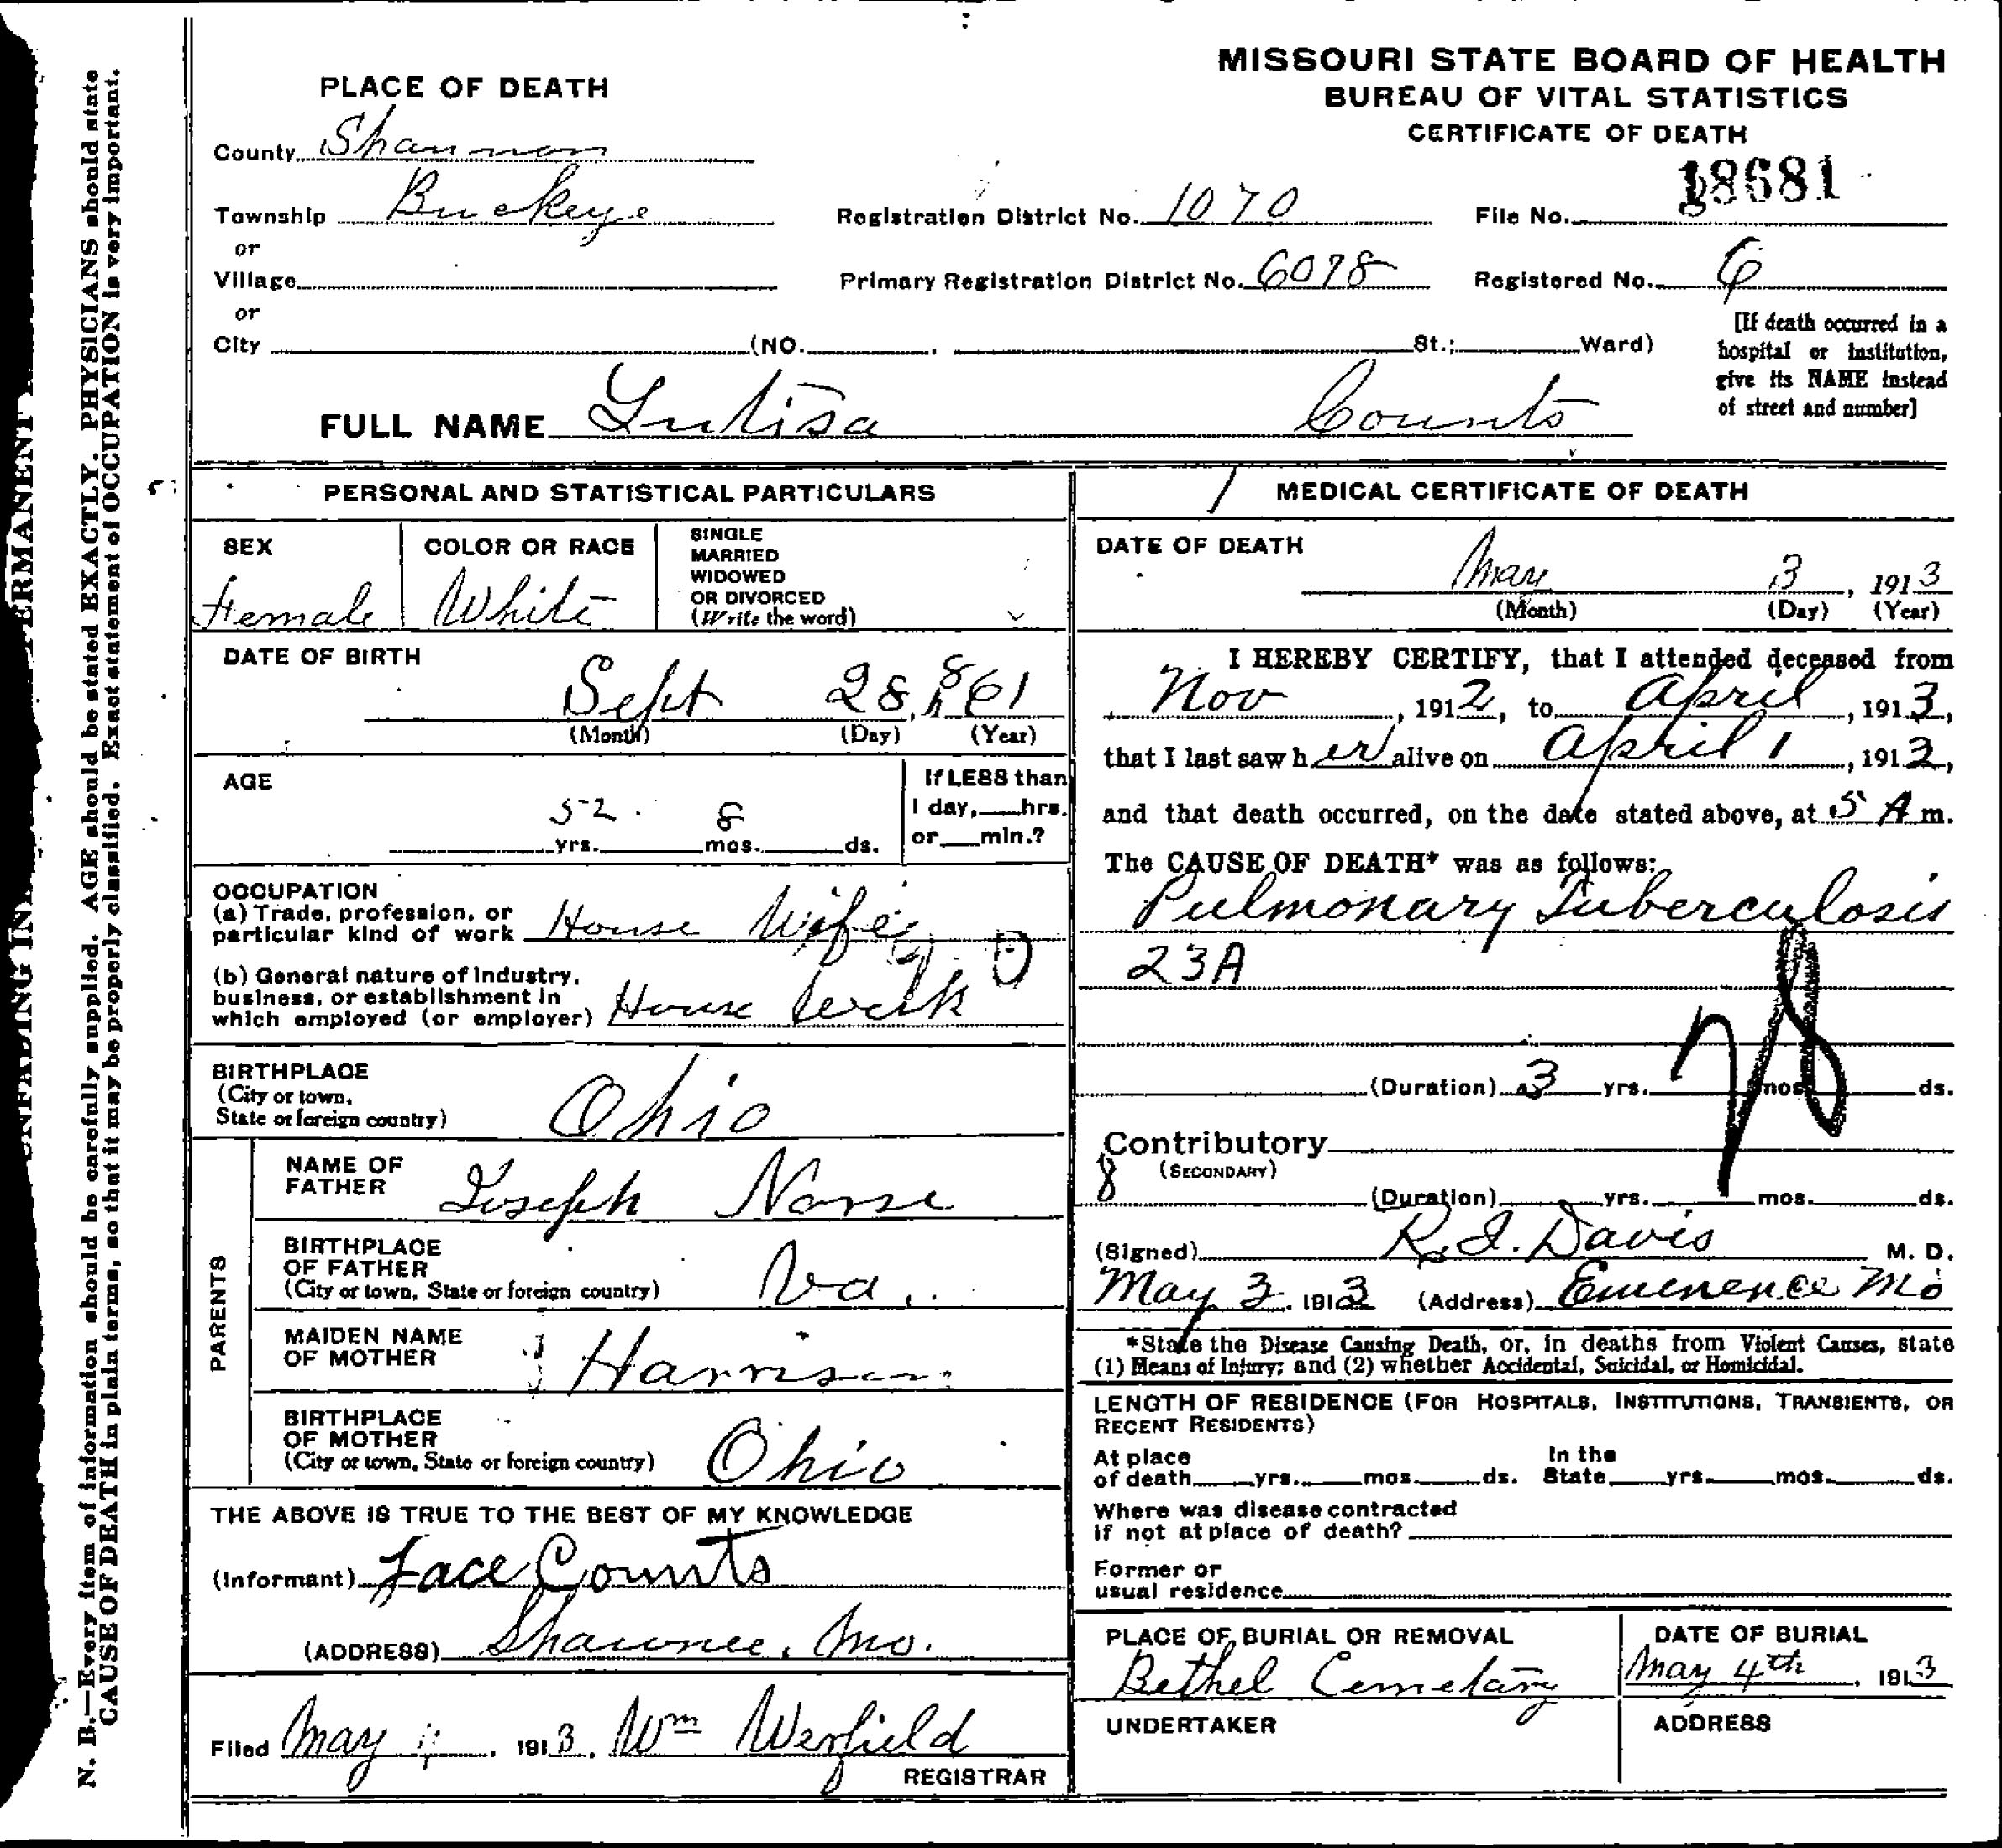 MISSOURI STATE BOARD OF HEALTH
BUREAU OF VITAL STATISTICS
CERTIFICATE OF DEATH
PLACE OF DEATH
County Shannon
Township Buckeye
or
Village
or
City (NO. , St.; Ward)
Registration District No. 1070
File No. 18681
Primary Registration District No. 6098
Registered No. 6
[If death occurred in a
hospital or institution,
give its NAME instead
of street and number]
FULL NAME Lutisa Counts
PERSONAL AND STATISTICAL PARTICULARS
SEX
Female
COLOR OR RACE
White
SINGLE
MARRIED
WIDOWED
OR DIVORCED
(Write the word)
DATE OF BIRTH
Sept 28, 1861
(Month) (Day) (Year)
AGE
52 yrs. 8 mos. ds.
If LESS than
1 day, hrs.
or min.?
OCCUPATION
(a) Trade, profession, or
particular kind of work House Wife
(b) General nature of Industry,
business, or establishment in
which employed (or employer) House Work
BIRTHPLACE
(City or town,
State or foreign country) Ohio
PARENTS
NAME OF
FATHER Joseph
BIRTHPLACE
OF FATHER
(City or town, State or foreign country) Va.
MAIDEN NAME
OF MOTHER Harrison
BIRTHPLACE
OF MOTHER
(City or town, State or foreign country) Ohio
THE ABOVE IS TRUE TO THE BEST OF MY KNOWLEDGE
(Informant) Face Counts
(ADDRESS) Shawnee, Mo.
Filed May 4, 1913. Wm Werfield
REGISTRAR
MEDICAL CERTIFICATE OF DEATH
DATE OF DEATH
May 3, 1913
(Month) (Day) (Year)
I HEREBY CERTIFY, that I attended deceased from
Nov, 1912, to April, 1913,
that I last saw her alive on April 1, 1913,
and that death occurred, on the date stated above, at 5 A m.
The CAUSE OF DEATH* was as follows:
Pulmonary Tuberculosis
23A
(Duration) 3 yrs. mos. ds.
Contributory
(SECONDARY)
8
(Duration) yrs. mos. ds.
(Signed) R. I. Davis M. D.
May 3, 1913 (Address) Eminence Mo
*State the Disease Causing Death, or, in deaths from Violent Causes, state
(1) Means of Injury; and (2) whether Accidental, Suicidal, or Homicidal.
LENGTH OF RESIDENCE (FOR HOSPITALS, INSTITUTIONS, TRANSIENTS, OR
RECENT RESIDENTS)
At place
of death yrs. mos. ds.
In the
State yrs. mos. ds.
Where was disease contracted
If not at place of death?
Former or
usual residence
PLACE OF BURIAL OR REMOVAL
Bethel Cemetary
DATE OF BURIAL
May 4th, 1913
UNDERTAKER
ADDRESS
N. B.—Every item of information should be carefully supplied. AGE should be stated EXACTLY. PHYSICIANS should state
CAUSE OF DEATH in plain terms, so that it may be properly classified. Exact statement of OCCUPATION is very important.